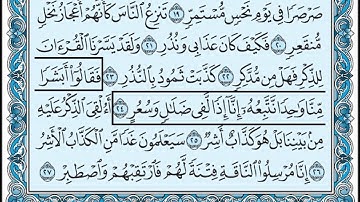 صَرْصَرًا فِي يَوْمِ نَحْسٍ مُّسْتَمِرٍّ ١٩ تَنزِعُ النَّاسَ كَأَنَّهُمْ أَعْجَازُ نَخْلٍ
مُّنقَعِرٍ ٢٠ فَكَيْفَ كَانَ عَذَابِي وَنُذُرِ ٢١ وَلَقَدْ يَسَّرْنَا الْقُرْءَانَ
لِلذِّكْرِ فَهَلْ مِن مُّدَّكِرٍ ٢٢ كَذَّبَتْ ثَمُودُ بِالنُّذُرِ ٢٣ فَقَالُوا أَبَشَرًا
مِّنَّا وَاحِدًا نَّتَّبِعُهُ إِنَّا إِذًا لَّفِي ضَلَالٍ وَسُعُرٍ ٢٤ أَءُلْقِيَ الذِّكْرُ عَلَيْهِ
مِنْ بَيْنِنَا بَلْ هُوَ كَذَّابٌ أَشِرٌ ٢٥ سَيَعْلَمُونَ غَدًا مَّنِ الْكَذَّابُ الْأَشِرُ
٢٦ إِنَّا مُرْسِلُوا النَّاقَةِ فِتْنَةً لَّهُمْ فَارْتَقِبْهُمْ وَاصْطَبِرْ ٢٧